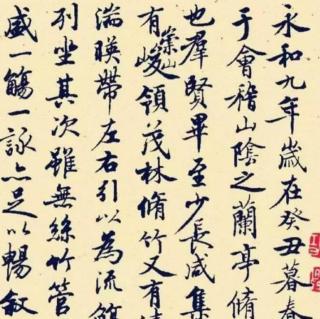 永和九年歲在癸丑暮春
于會稽山陰之蘭亭脩
也羣賢畢至少長咸集
有崇山峻領茂林脩竹又有清
湍暎帶左右引以為流觴
列坐其次雖無絲竹管
盛一觴一詠亦足以暢叙